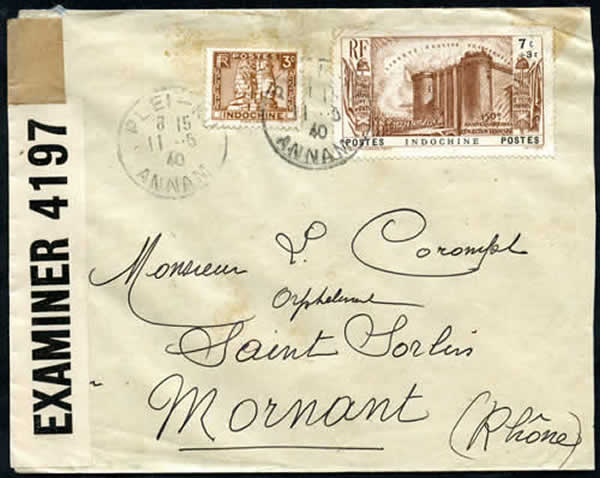 EXAMINER 4197
PLEI-
8 15
11 -5
40
ANNAM
3c
INDOCHINE
40
ANNAM
RF
7c
+3c
150e
POSTES INDOCHINE POSTES
Monsieur L.
Orphelinat
Saint Sorlin
Mornant
(Rhône)